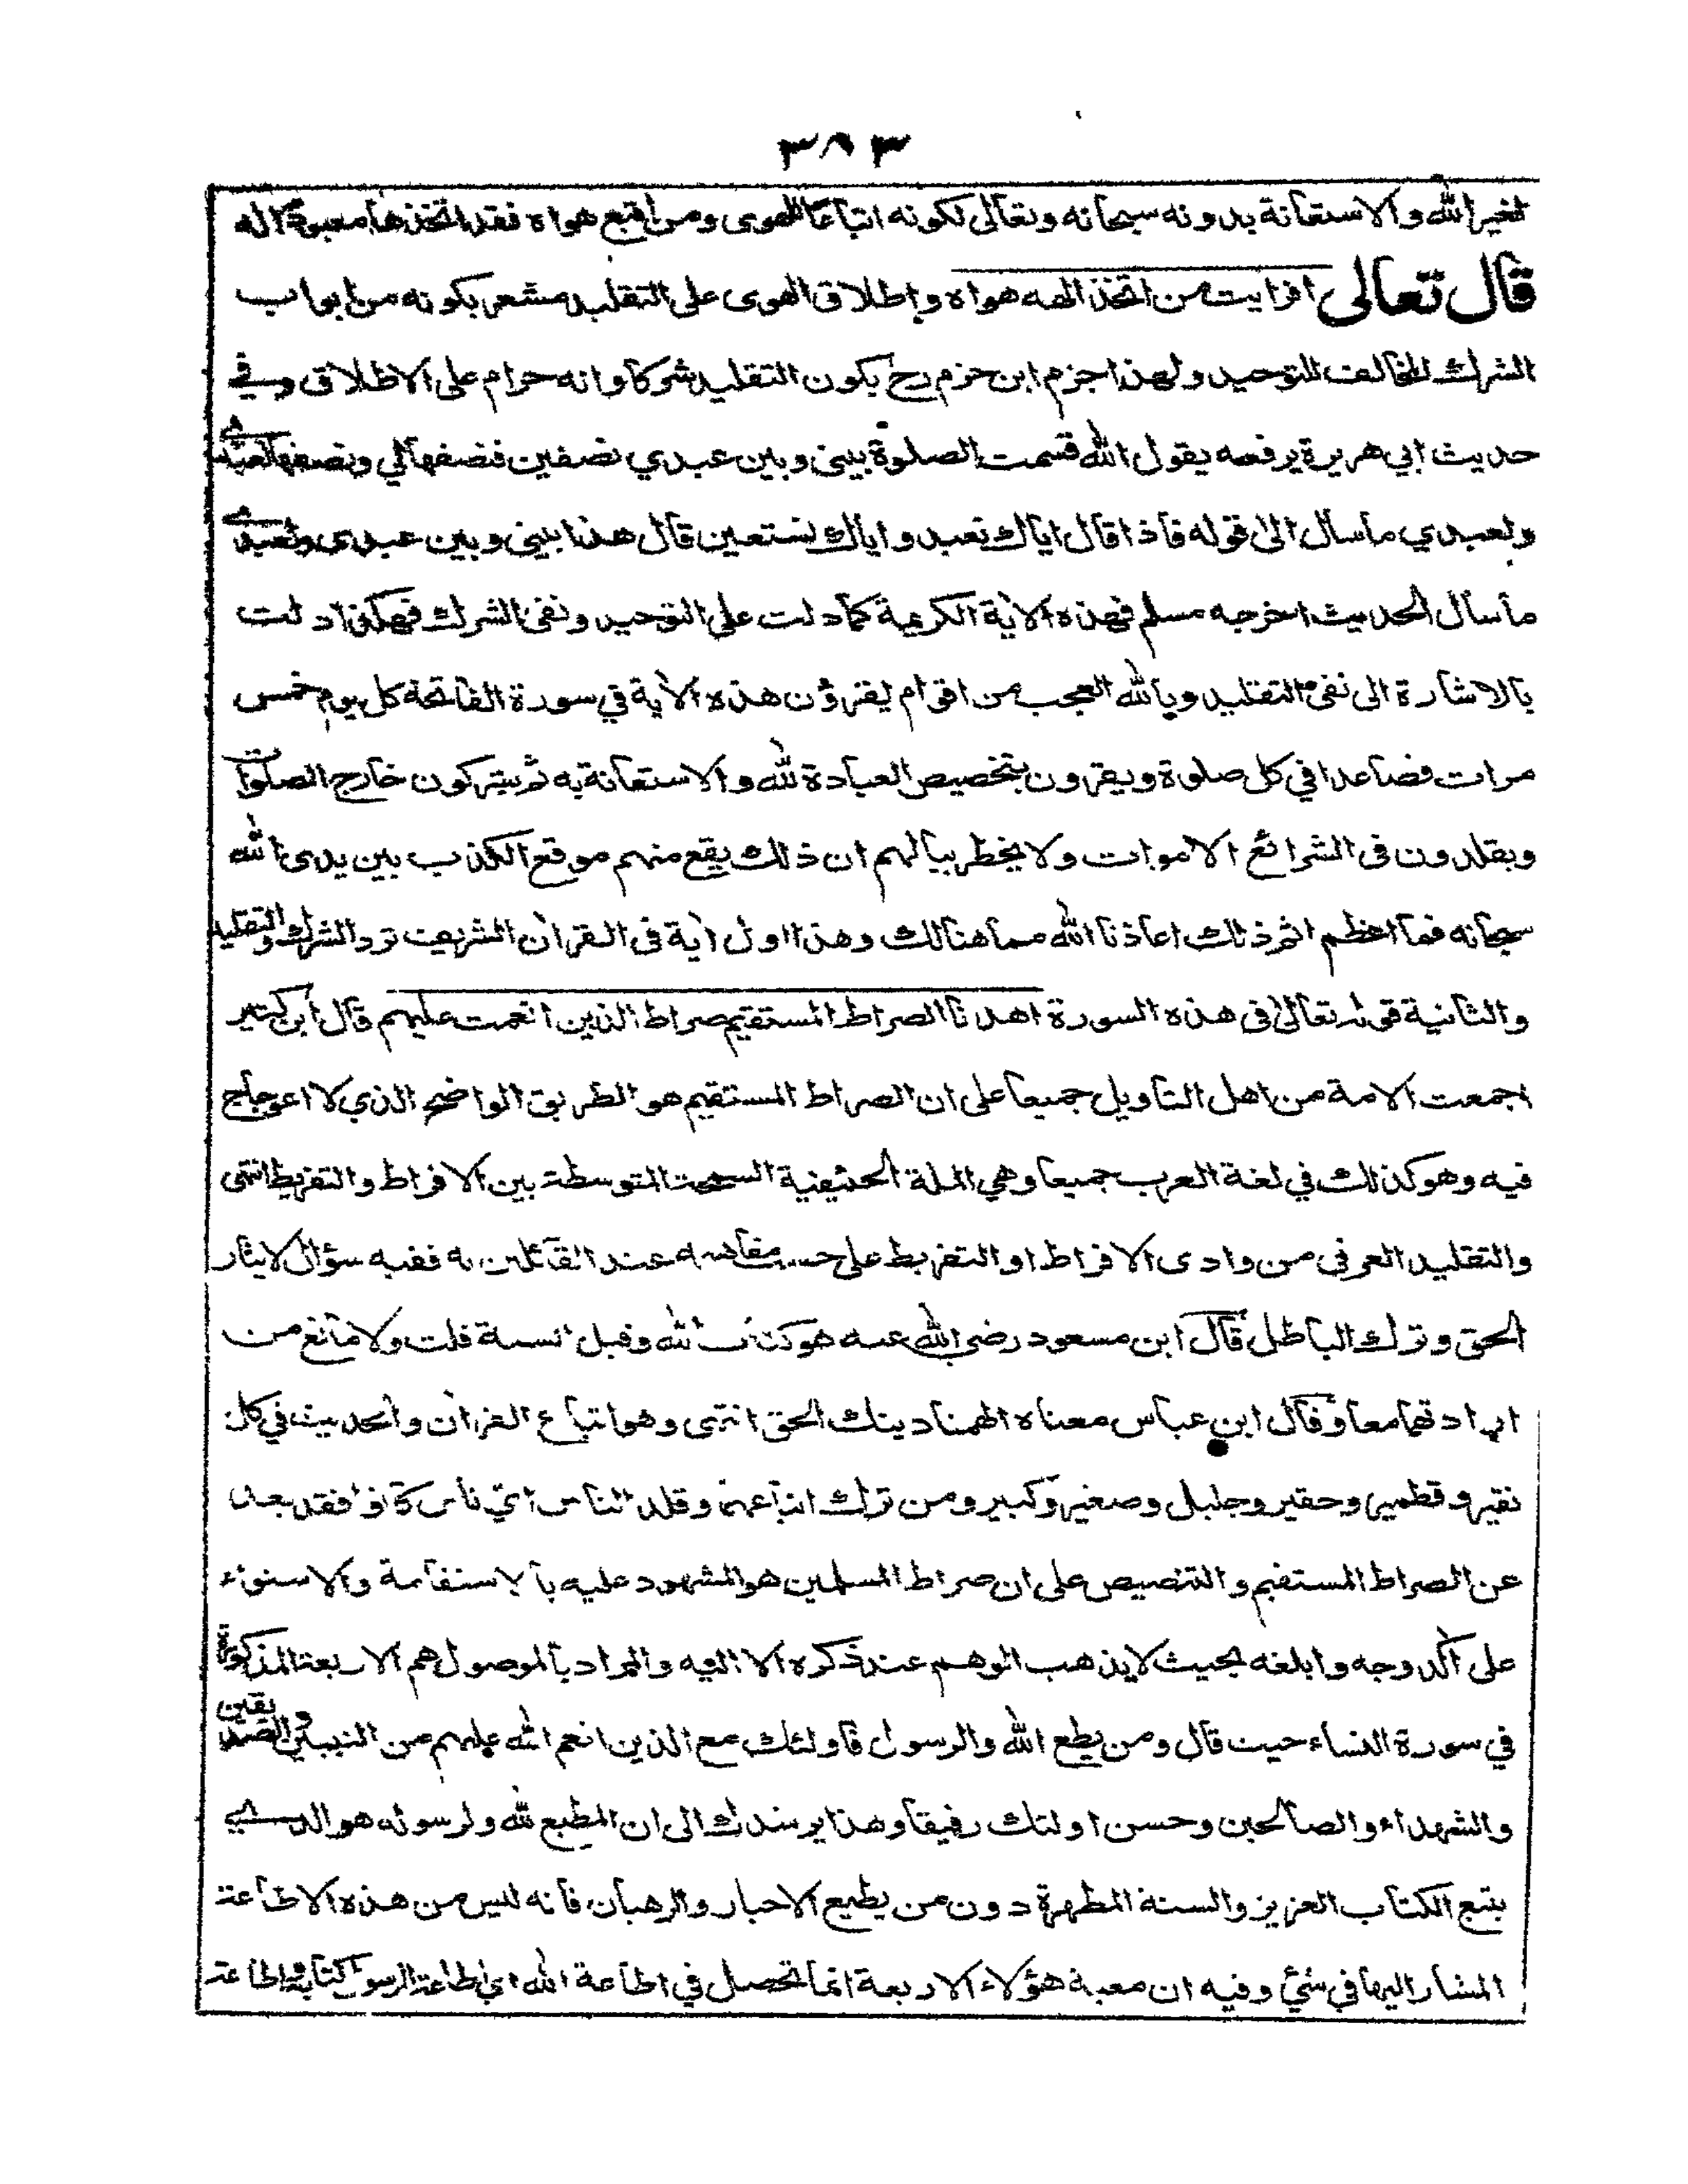 ٣٨٣
لغير الله والاستعانة بدونه سبحانه وتعالى لكونه اتباعا للهوى ومن اتبع هواه فقد اتخذها معبودا له
قال تعالى افرايت من اتخذ الهه هواه واطلاق الهوى على التقليد مشعر بكونه من ابواب
الشرك المخالف للتوحيد ولهذا جزم ابن حزم رح بكون التقليد شركا وانه حرام على الاطلاق وفي
حديث ابي هريرة يرفعه يقول الله قسمت الصلوة بيني وبين عبدي نصفين فنصفها لي ونصفها لعبدي
ولعبدي ما سأل الى قوله فاذا قال اياك نعبد واياك نستعين قال هذا بيني وبين عبدي ولعبدي
ما سأل الحديث اخرجه مسلم فهذه الاية الكريمة كما دلت على التوحيد ونفى الشرك فهكذا دلت
بالاشارة الى نفى التقليد ويالله العجب من اقوام يقرؤن هذه الاية في سورة الفاتحة كل يوم خمس
مرات فصاعدا في كل صلوة ويقرون بتخصيص العبادة لله والاستعانة به ثم يشركون خارج الصلوات
ويقلدون فى الشرائع الاموات ولا يخطر ببالهم ان ذلك يقع منهم موقع الكذب بين يدى الله
سبحانه فما اعظم اثم ذلك اعاذنا الله مما هنالك وهذا اول اية فى القران الشريف ترد الشرك والتقليد
والثانية قوله تعالى فى هذه السورة اهدنا الصراط المستقيم صراط الذين انعمت عليهم قال ابن كثير
اجمعت الامة من اهل التاويل جميعا على ان الصراط المستقيم هو الطريق الواضح الذي لا اعوجاج
فيه وهو كذلك في لغة العرب جميعا وهي الملة الحنيفية السمحة المتوسطة بين الافراط والتفريط انتهى
والتقليد العرفي من وادى الافراط او التفريط على حسب مقاصده عند القائلين به ففيه سؤال لايثار
الحق وترك الباطل قال ابن مسعود رضي الله عنه هو كتاب الله وقيل السنة قلت ولا مانع من
ارادتهما معا وقال ابن عباس معناه الهمنا دينك الحق انتهى وهو اتباع القران والحديث في كل
نقير وقطمير وحقير وجليل وصغير وكبير ومن ترك اتباعهما وقلد الناس اي ناس كانوا فقد بعد
عن الصراط المستقيم والتنصيص على ان صراط المسلمين هو المشهود عليه بالاستقامة والاستواء
على اكد وجه وابلغه بحيث لا يذهب الوهم عند ذكره الا اليه والمراد بالموصول هم الاربعة المذكورة
في سورة النساء حيث قال ومن يطع الله والرسول فاولئك مع الذين انعم الله عليهم من النبيين والصديقين
والشهداء والصالحين وحسن اولئك رفيقا وهذا يرشدك الى ان المطيع لله ولرسوله هو الذي
يتبع الكتاب العزيز والسنة المطهرة دون من يطيع الاحبار والرهبان فانه ليس من هذه الاطاعة
المشار اليها في شئ وفيه ان معية هؤلاء الاربعة انما تحصل في اطاعة الله اي اطاعة الرسول كتابه واطاعة